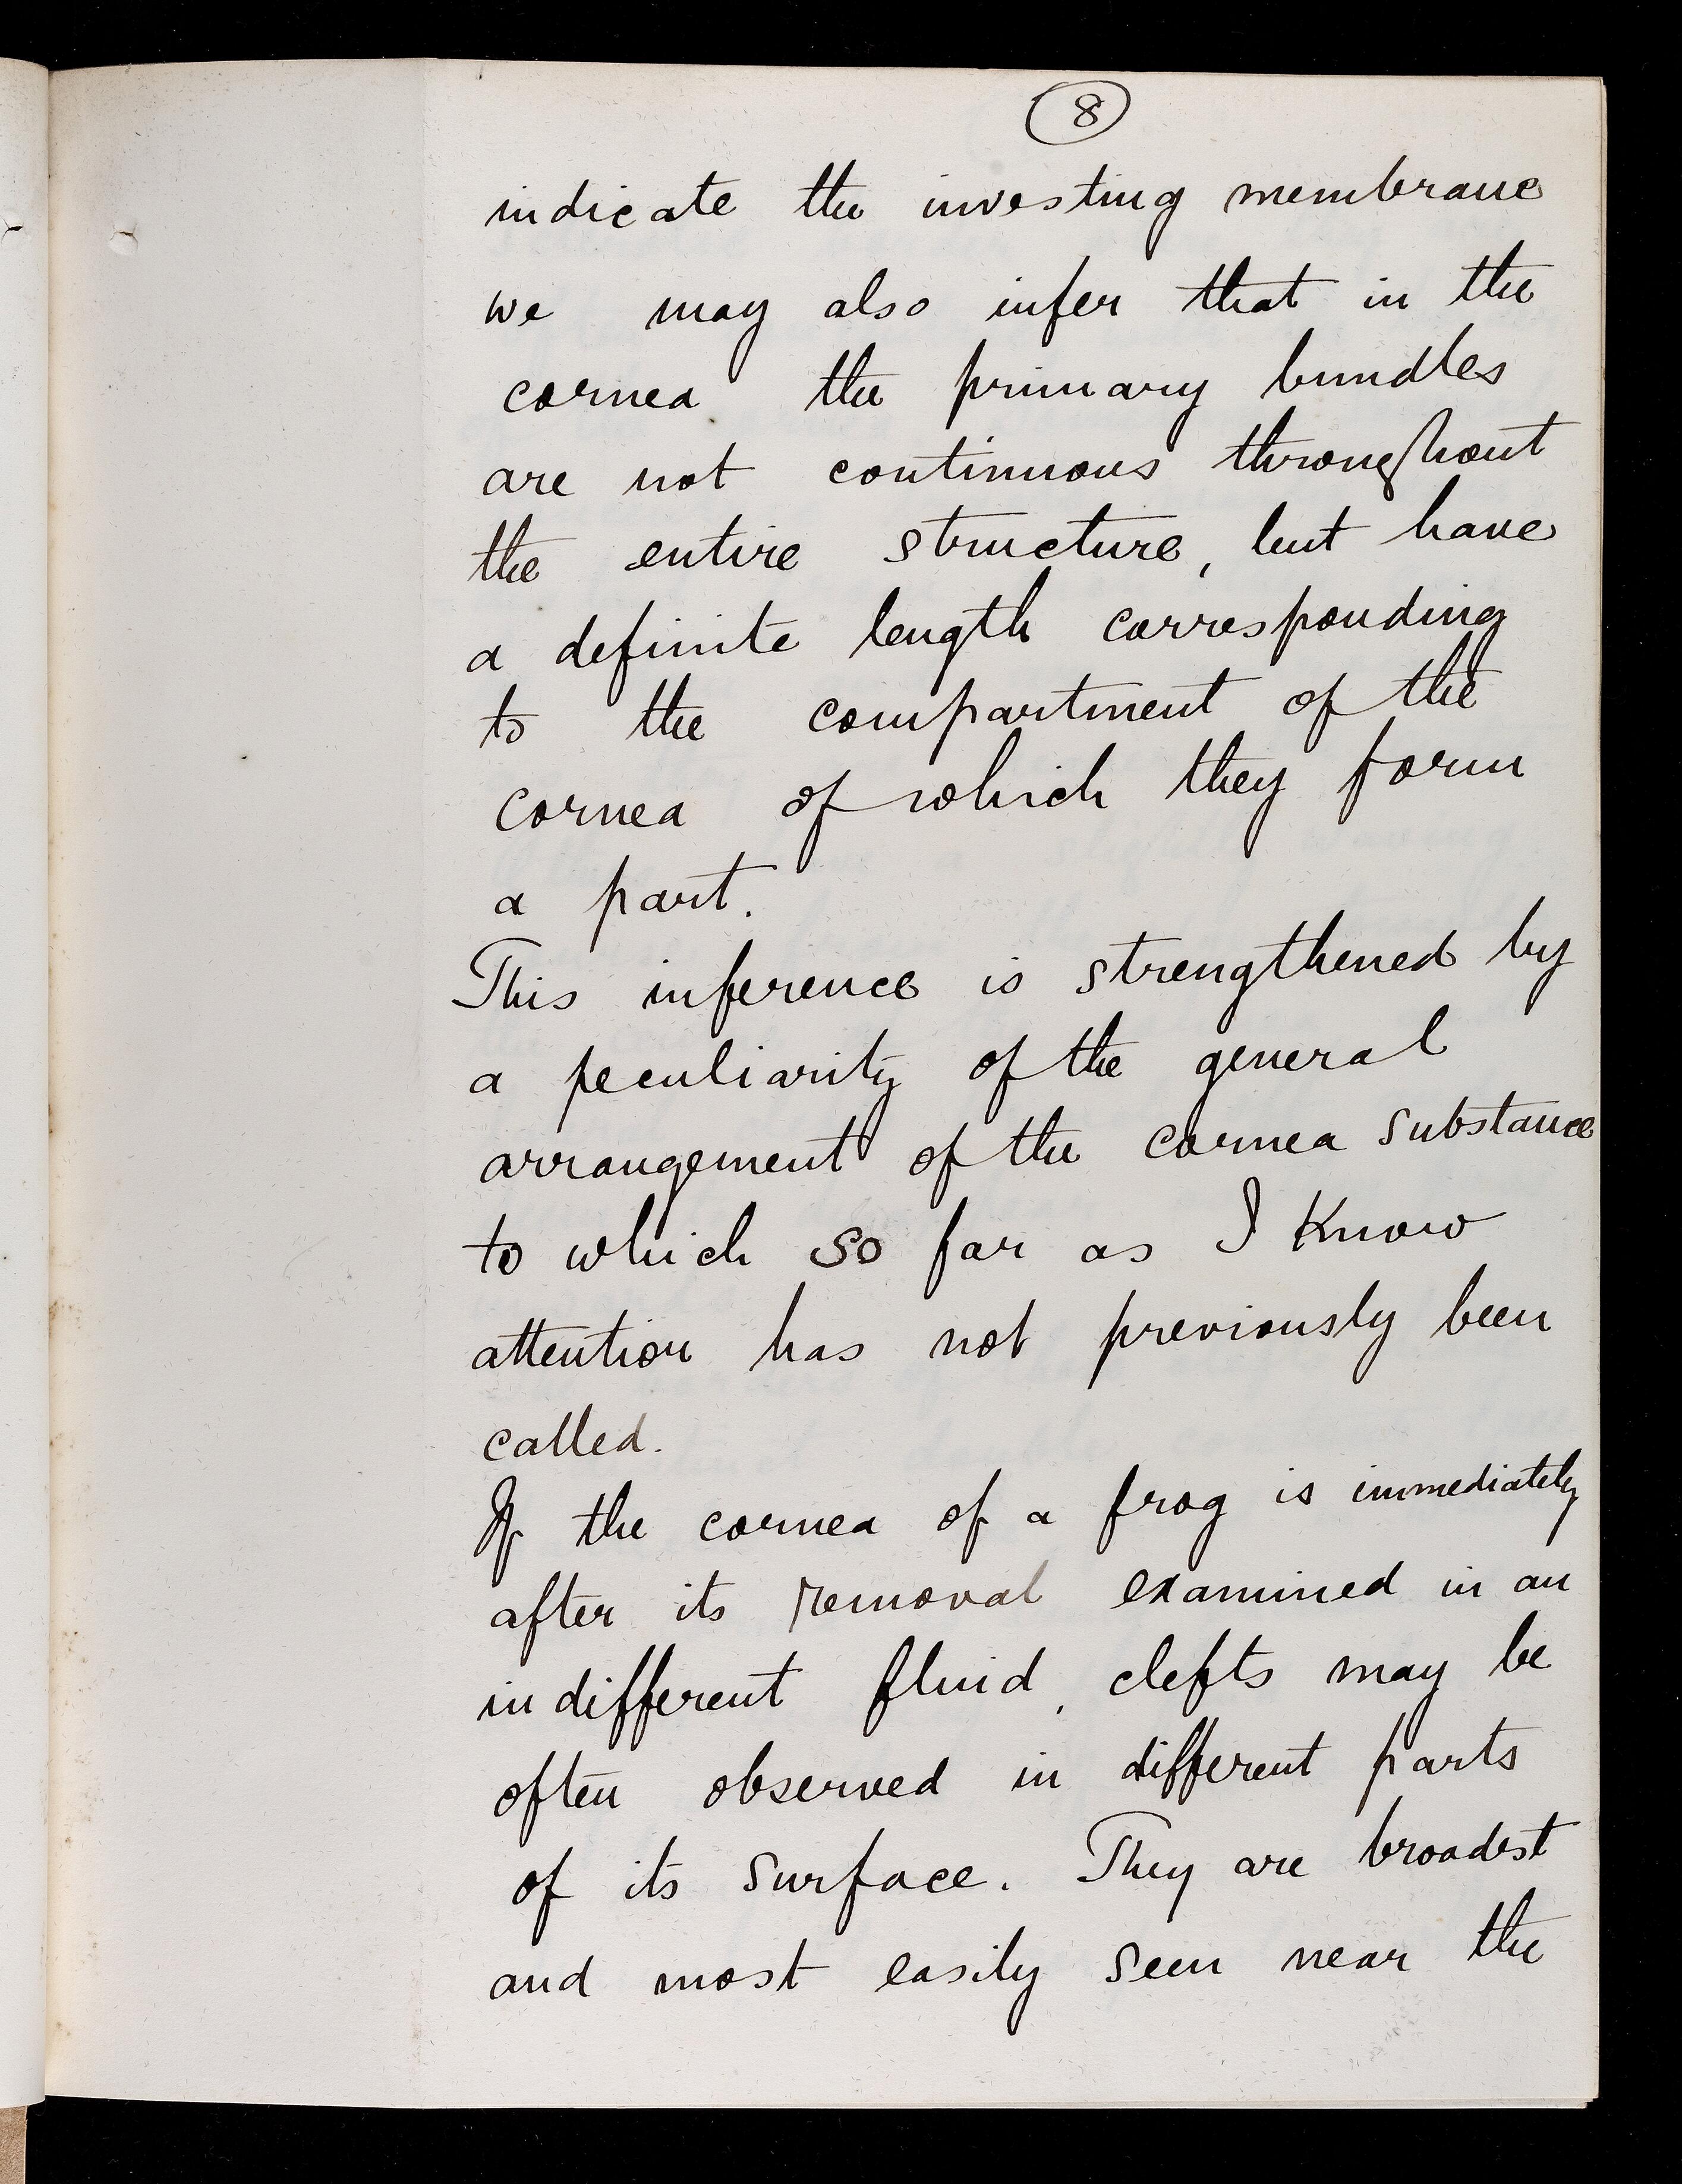 8
indicate the investing membrane
we may also infer that in the
cornea the primary bundles
are not continuous throughout
the entire structure, but have
a definite length corresponding
to the compartment of the
cornea of which they form
a part.
This inference is strengthened by
a peculiarity of the general
arrangement of the cornea substance
to which so far as I know
attention has not previously been
called.
If the cornea of a frog is immediately
after its removal examined in an
indifferent fluid, clefts may be
often observed in different parts
of its surface. They are broadest
and most easily seen near the